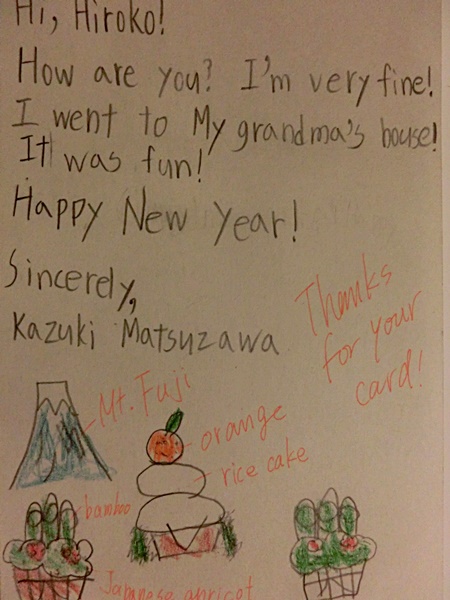 Hi, Hiroko!
How are you? I'm very fine!
I went to My grandma's house!
It was fun!
Happy New Year!
Sincerely,
Kazuki Matsuzawa
Thanks
for your
card!
Mt. Fuji
orange
rice cake
bamboo
Japanese apricot